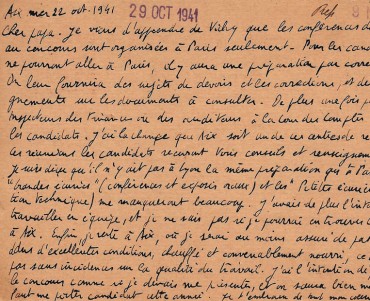 Aix mer 22 oct. 1941
29 OCT 1941
Rep
Cher papa. je viens d'apprendre de Vichy que les conférences de
au concours sont organisées à Paris seulement. Pour les can
ne pourront aller à Paris, il y aura une préparation par corre
On leur fournira des sujets de devoirs et les corrections, et de
gnements sur les documents à consulter. De plus une fois p
Inspecteurs des Finances ou des auditeurs à la Cour des Comptes
les candidats. J'ai la chance que Aix soit un de ces centres de re
ces réunions les candidats recevront conseils et renseignem
Je suis déçu qu'il n'y ait pas à Lyon la même préparation qu'à Pa
"grandes écuries" (conférences et exposés oraux) et les "Petites écuries
tion technique) me manqueront beaucoup. J'aurais de plus l'int
travailler en équipe, et je ne sais pas si je pourrai en trouver u
à Aix. Enfin, je reste à Aix, où je serai au moins assuré de pa
dans d'excellentes conditions, chauffé et convenablement nourri, ce
pas sans incidences sur la qualité du travail. J'ai l'intention de
le concours comme si je devais me présenter, et on saura bien m
faut me porter candidat cette année.